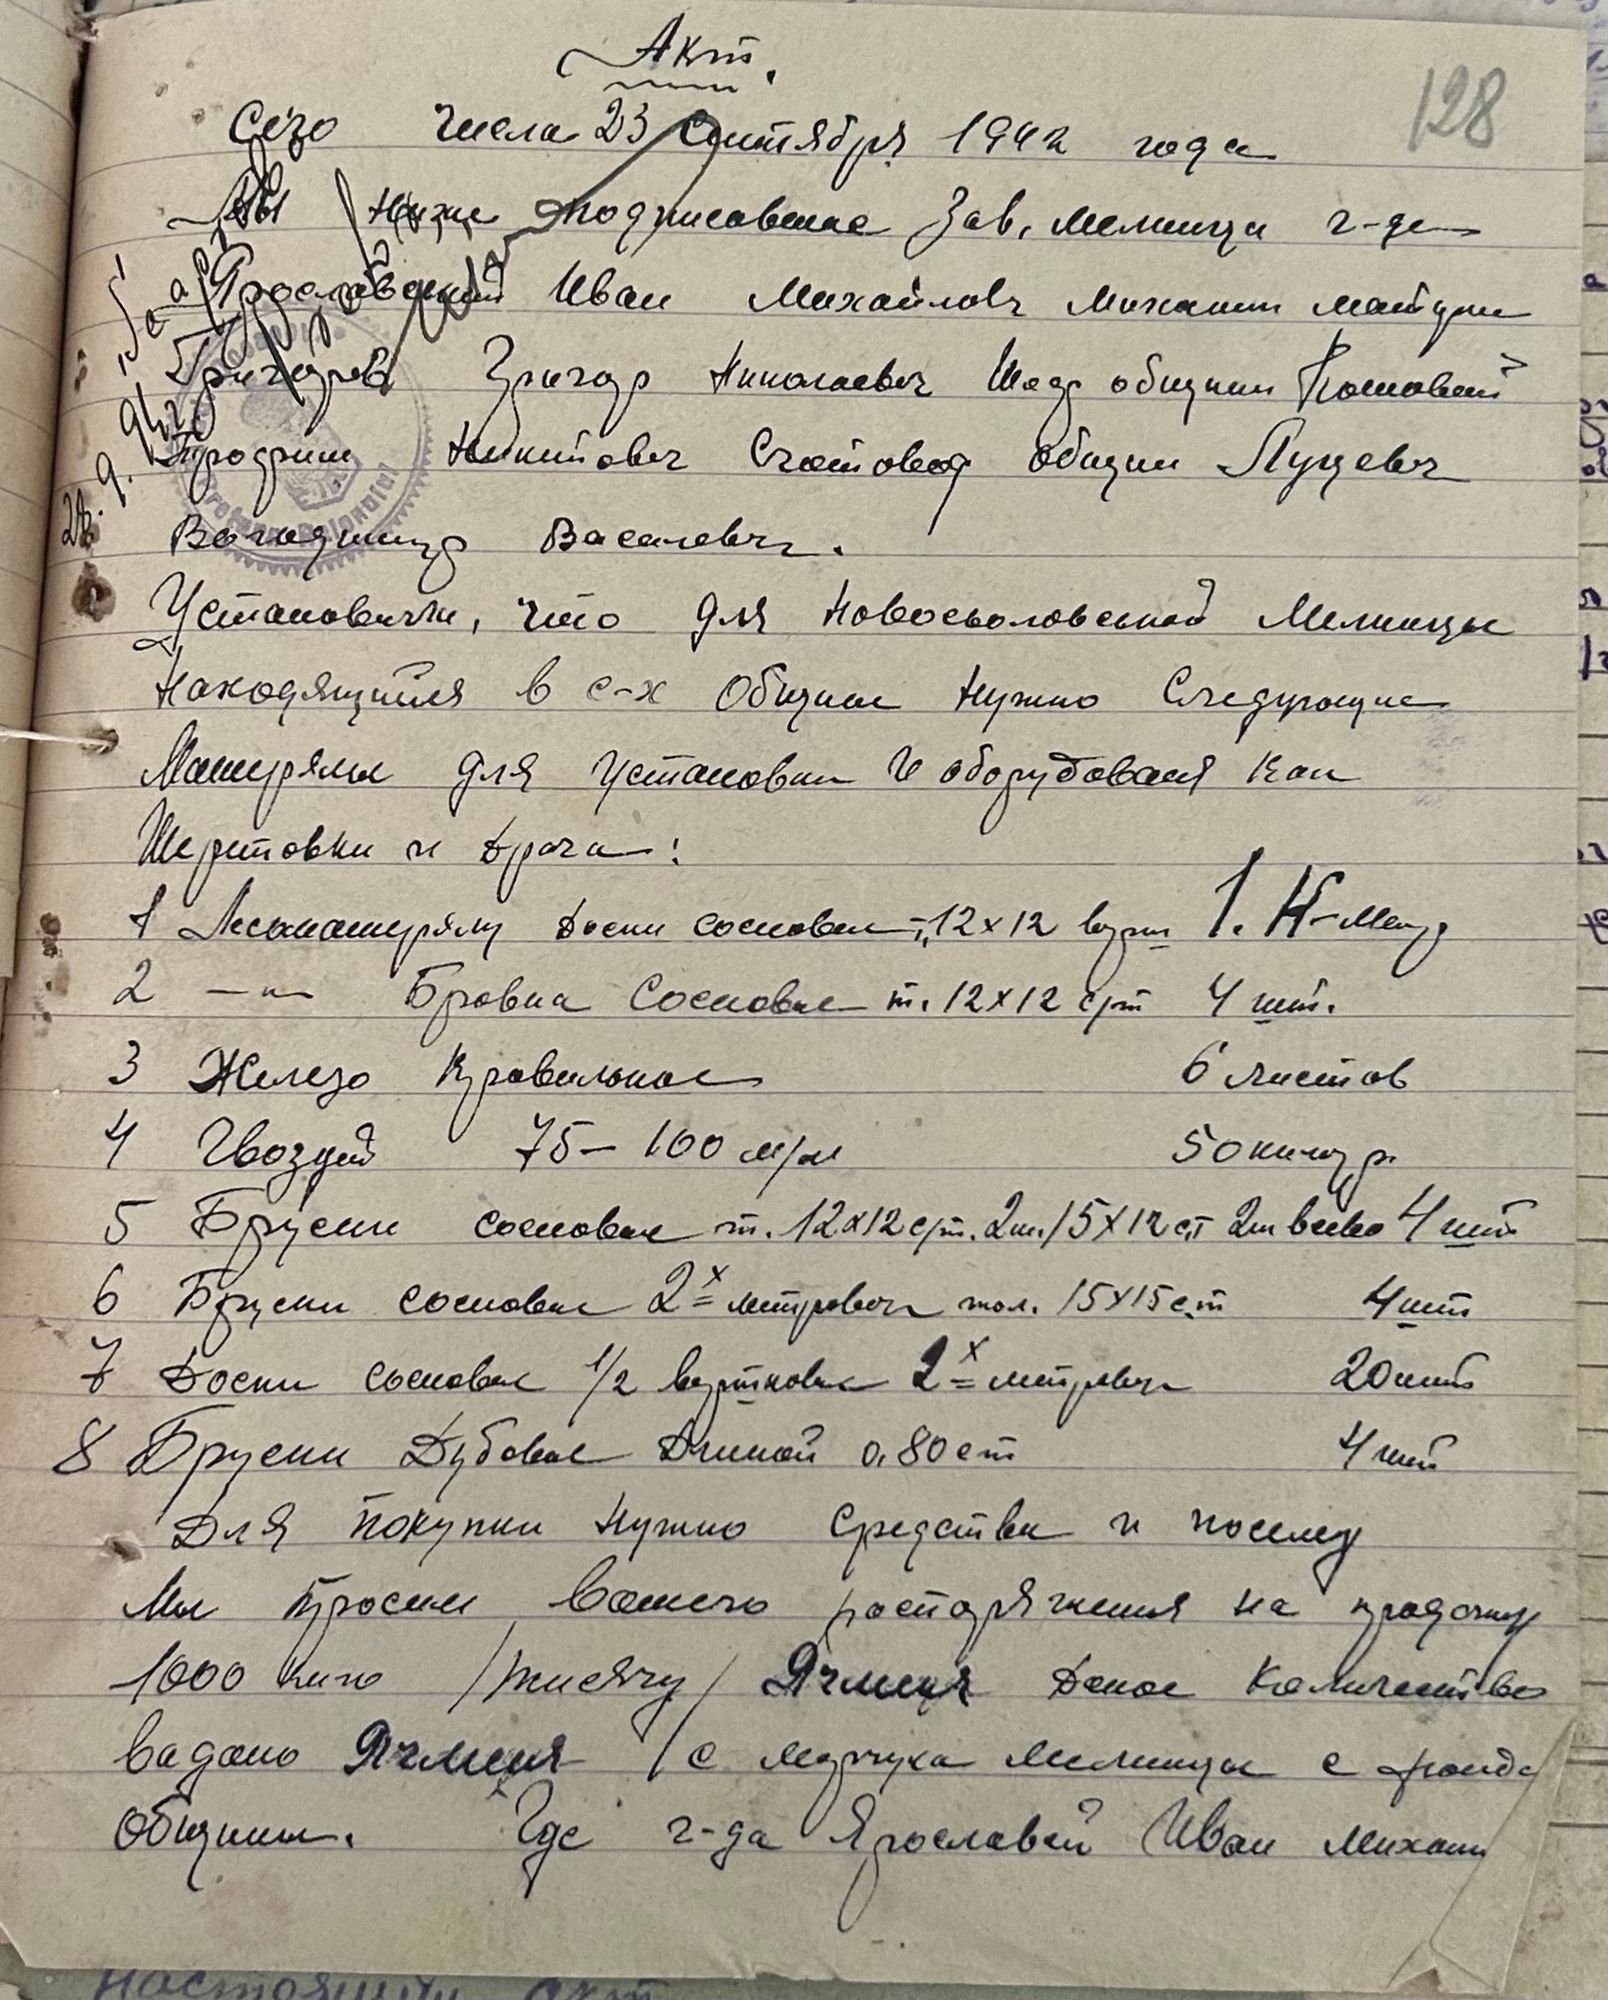 Акт.
128
Сего числа 23 Сентября 1942 года
Мы ниже подписавшие Зав. Мелници г-да
Ярославский Иван Михайловч Механик
Григоров Григор Николаевич Шеф общини
Никитович Счетовод общини Луцевич
Васелевич.
Установили, что для Новосьоловской Мелници
Находящийся в с-х Общине Нужно Следующие
Матерялы для Установки и оборудования Как
Шеретовки и Драча:
1 Лесьматерялу Доски сосновые т. 12х12 1.
2 —"— Бровна Сосновые т. 12х12 с/т 4 шт.
3 Железо Кровильное 6 листов
4 Гвоздей 75 – 100 м/м 50 килогр.
5 Бруски сосновые т. 12х12 с/т. 2 шт. 15х12 ст 2 шт всево 4 шт
6 Бруски сосновые 2х метрович тол. 15х15 с.т 4 шт
7 Доски сосновые 1/2 вертковые 2х метрович 20 шт
8 Бруски Дубовые Длиной 0,80 ст 4 шт
Для покупки Нужно Средства и посему
Мы Просим Вашего распоряжения на продажу
1000 кило /тисячу/ Ячменя Даное Количество
Ячменя /с мерчука Мелници с фонда
Общины. Где г-да Ярославсй Иван Механик
Настоящий акт